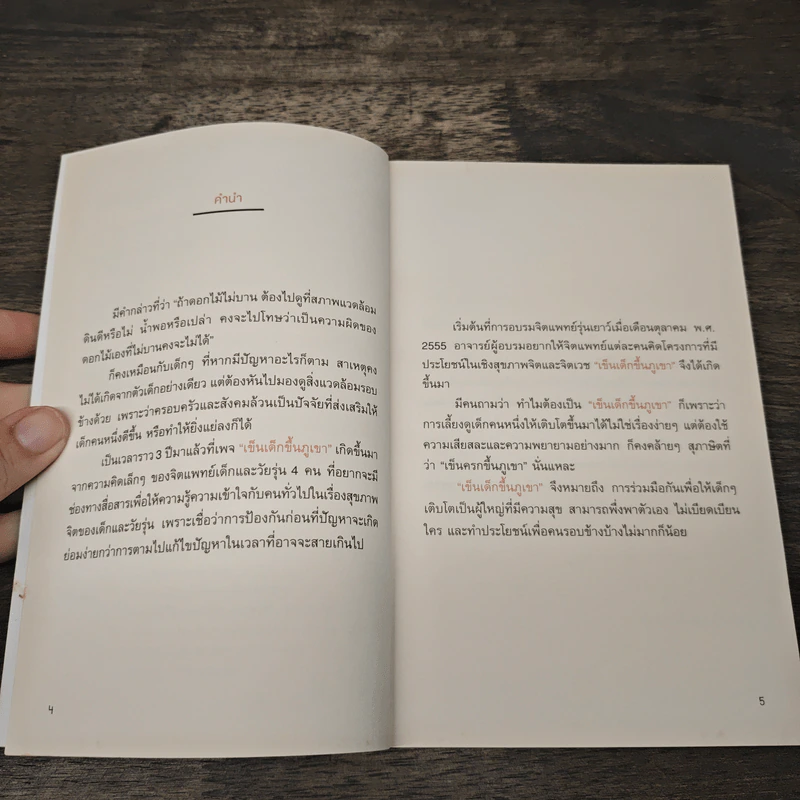 คำนำ
มีคำกล่าวที่ว่า "ถ้าดอกไม้ไม่บาน ต้องไปดูที่สภาพแวดล้อม
ดินดีหรือไม่ น้ำพอหรือเปล่า คงจะไปโทษว่าเป็นความผิดของ
ดอกไม้เองที่ไม่บานคงจะไม่ได้"
ก็คงเหมือนกับเด็กๆ ที่หากมีปัญหาอะไรก็ตาม สาเหตุคง
ไม่ได้เกิดจากตัวเด็กอย่างเดียว แต่ต้องหันไปมองดูสิ่งแวดล้อมรอบ
ข้างด้วย เพราะว่าครอบครัวและสังคมล้วนเป็นปัจจัยที่ส่งเสริมให้
เด็กคนหนึ่งดีขึ้น หรือทำให้ยิ่งแย่ลงก็ได้
เป็นเวลาราว 3 ปีมาแล้วที่เพจ "เข็นเด็กขึ้นภูเขา" เกิดขึ้นมา
จากความคิดเล็กๆ ของจิตแพทย์เด็กและวัยรุ่น 4 คน ที่อยากจะมี
ช่องทางสื่อสารเพื่อให้ความรู้ความเข้าใจกับคนทั่วไปในเรื่องสุขภาพ
จิตของเด็กและวัยรุ่น เพราะเชื่อว่าการป้องกันก่อนที่ปัญหาจะเกิด
ย่อมง่ายกว่าการตามไปแก้ไขปัญหาในเวลาที่อาจจะสายเกินไป
4
เริ่มต้นที่การอบรมจิตแพทย์รุ่นเยาว์เมื่อเดือนตุลาคม พ.ศ.
2555 อาจารย์ผู้อบรมอยากให้จิตแพทย์แต่ละคนคิดโครงการที่มี
ประโยชน์ในเชิงสุขภาพจิตและจิตเวช "เข็นเด็กขึ้นภูเขา" จึงได้เกิด
ขึ้นมา
มีคนถามว่า ทำไมต้องเป็น "เข็นเด็กขึ้นภูเขา" ก็เพราะว่า
การเลี้ยงดูเด็กคนหนึ่งให้เติบโตขึ้นมาได้ไม่ใช่เรื่องง่ายๆ แต่ต้องใช้
ความเสียสละและความพยายามอย่างมาก ก็คงคล้ายๆ สุภาษิตที่
ว่า "เข็นครกขึ้นภูเขา" นั่นแหละ
"เข็นเด็กขึ้นภูเขา" จึงหมายถึง การร่วมมือกันเพื่อให้เด็กๆ
เติบโตเป็นผู้ใหญ่ที่มีความสุข สามารถพึ่งพาตัวเอง ไม่เบียดเบียน
ใคร และทำประโยชน์เพื่อคนรอบข้างบ้างไม่มากก็น้อย
5